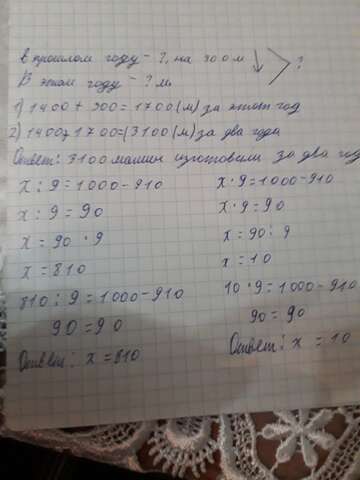 в прошлом году - ?, на 300 м
В этом году - ? м.
?
1) 1400 + 300 = 1700 (м) за этот год
2) 1400 + 1700 = (3100 (м) за два года
Ответ: 3100 машин изготовили за два года
x : 9 = 1000 - 910
x : 9 = 90
x = 90 · 9
x = 810
810 : 9 = 1000 - 910
90 = 90
Ответ: x = 810
x · 9 = 1000 - 910
x · 9 = 90
x = 90 : 9
x = 10
10 · 9 = 1000 - 910
90 = 90
Ответ: x = 10